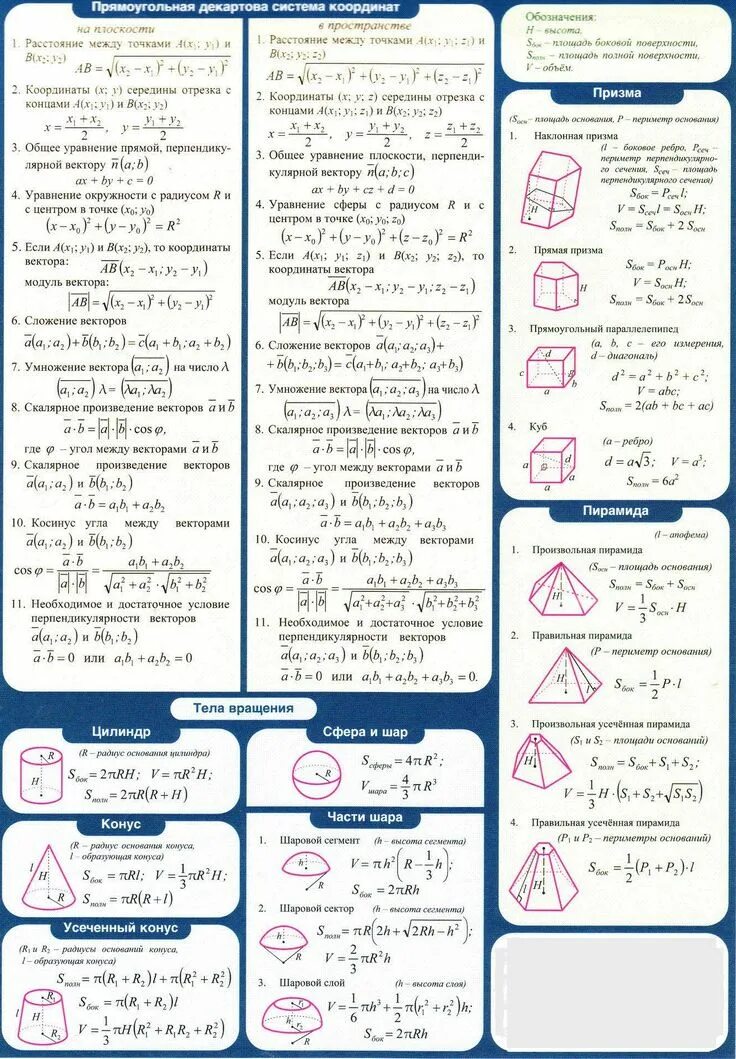 Прямоугольная декартова система координат
на плоскости
1. Расстояние между точками A(x₁; y₁) и
B(x₂; y₂)
AB = √((x₂ – x₁)² + (y₂ – y₁)²)
2. Координаты (x; y) середины отрезка с
концами A(x₁; y₁) и B(x₂; y₂)
x = (x₁ + x₂)/2, y = (y₁ + y₂)/2
3. Общее уравнение прямой, перпендику-
лярной вектору n̅(a; b)
ax + by + c = 0
4. Уравнение окружности с радиусом R и
с центром в точке (x₀; y₀)
(x – x₀)² + (y – y₀)² = R²
5. Если A(x₁; y₁) и B(x₂; y₂), то координаты
вектора: A̅B̅(x₂ – x₁; y₂ – y₁)
модуль вектора:
|A̅B̅| = √((x₂ – x₁)² + (y₂ – y₁)²)
6. Сложение векторов
a̅(a₁; a₂) + b̅(b₁; b₂) = c̅(a₁ + b₁; a₂ + b₂)
7. Умножение вектора (a₁; a₂) на число λ
(a₁; a₂) λ = (λa₁; λa₂)
8. Скалярное произведение векторов a̅ и b̅
a̅ · b̅ = |a̅| · |b̅| · cos φ,
где φ – угол между векторами a̅ и b̅
9. Скалярное произведение векторов
a̅(a₁; a₂) и b̅(b₁; b₂)
a̅ · b̅ = a₁b₁ + a₂b₂
10. Косинус угла между векторами
a̅(a₁; a₂) и b̅(b₁; b₂)
cos φ = (a̅ · b̅)/(|a̅| · |b̅|) = (a₁b₁ + a₂b₂)/(√(a₁² + a₂²) · √(b₁² + b₂²))
11. Необходимое и достаточное условие
перпендикулярности векторов
a̅(a₁; a₂) и b̅(b₁; b₂)
a̅ · b̅ = 0 или a₁b₁ + a₂b₂ = 0
в пространстве
1. Расстояние между точками A(x₁; y₁; z₁) и
B(x₂; y₂; z₂)
AB = √((x₂ – x₁)² + (y₂ – y₁)² + (z₂ – z₁)²)
2. Координаты (x; y; z) середины отрезка с
концами A(x₁; y₁; z₁) и B(x₂; y₂; z₂)
x = (x₁ + x₂)/2, y = (y₁ + y₂)/2, z = (z₁ + z₂)/2
3. Общее уравнение плоскости, перпенди-
кулярной вектору n̅(a; b; c)
ax + by + cz + d = 0
4. Уравнение сферы с радиусом R и с
центром в точке (x₀; y₀; z₀)
(x – x₀)² + (y – y₀)² + (z – z₀)² = R²
5. Если A(x₁; y₁; z₁) и B(x₂; y₂; z₂), то
координаты вектора
A̅B̅(x₂ – x₁; y₂ – y₁; z₂ – z₁)
модуль вектора
|A̅B̅| = √((x₂ – x₁)² + (y₂ – y₁)² + (z₂ – z₁)²)
6. Сложение векторов a̅(a₁; a₂; a₃) +
+ b̅(b₁; b₂; b₃) = c̅(a₁ + b₁; a₂ + b₂; a₃ + b₃)
7. Умножение вектора (a₁; a₂; a₃) на число λ
(a₁; a₂; a₃) λ = (λa₁; λa₂; λa₃)
8. Скалярное произведение векторов a̅ и b̅
a̅ · b̅ = |a̅| · |b̅| · cos φ,
где φ – угол между векторами a̅ и b̅
9. Скалярное произведение векторов
a̅(a₁; a₂; a₃) и b̅(b₁; b₂; b₃)
a̅ · b̅ = a₁b₁ + a₂b₂ + a₃b₃
10. Косинус угла между векторами
a̅(a₁; a₂; a₃) и b̅(b₁; b₂; b₃)
cos φ = (a̅ · b̅)/(|a̅| · |b̅|) = (a₁b₁ + a₂b₂ + a₃b₃)/(√(a₁² + a₂² + a₃²) · √(b₁² + b₂² + b₃²))
11. Необходимое и достаточное условие
перпендикулярности векторов
a̅(a₁; a₂; a₃) и b̅(b₁; b₂; b₃)
a̅ · b̅ = 0 или a₁b₁ + a₂b₂ + a₃b₃ = 0.
Обозначения:
H – высота,
Sбок – площадь боковой поверхности,
Sполн – площадь полной поверхности,
V – объём.
Призма
(Sосн – площадь основания, P – периметр основания)
1. Наклонная призма
(l – боковое ребро, Pсеч –
периметр перпендикулярно-
го сечения, Sсеч – площадь
перпендикулярного сечения)
Sбок = Pсеч l;
V = Sсеч l = Sосн H;
Sполн = Sбок + 2 Sосн
H
2. Прямая призма
Sбок = Pосн H;
V = Sосн H;
Sполн = Sбок + 2Sосн
H
3. Прямоугольный параллелепипед
(a, b, c – его измерения,
d – диагональ)
d² = a² + b² + c²;
V = abc;
Sполн = 2(ab + bc + ac)
d
c
b
a
4. Куб
(a – ребро)
d = a√3; V = a³;
Sполн = 6a²
d
a
a
a
Пирамида
(l – апофема)
1. Произвольная пирамида
(Sосн – площадь основания)
Sполн = Sбок + Sосн
V = 1/3 Sосн · H
H
2. Правильная пирамида
(P – периметр основания)
Sбок = 1/2 P · l
H
l
3. Произвольная усечённая пирамида
(S₁ и S₂ – площади оснований)
Sполн = Sбок + S₁ + S₂;
V = 1/3 H · (S₁ + S₂ + √(S₁S₂))
H
4. Правильная усечённая пирамида
(P₁ и P₂ – периметры оснований)
Sбок = 1/2 (P₁ + P₂) · l
H
l
Тела вращения
Цилиндр
(R – радиус основания цилиндра)
Sбок = 2πRH; V = πR²H;
Sполн = 2πR(R + H)
R
H
Конус
(R – радиус основания конуса,
l – образующая конуса)
Sбок = πRl; V = 1/3 πR²H;
Sполн = πR(R + l)
l
H
R
Усеченный конус
(R₁ и R₂ – радиусы оснований конуса,
l – образующая конуса)
Sполн = π(R₁ + R₂)l + π(R₁² + R₂²)
Sбок = π(R₁ + R₂)l
V = 1/3 πH(R₁² + R₁R₂ + R₂²)
R₁
l
H
R₂
Сфера и шар
Sсферы = 4πR²;
Vшара = 4/3 πR³
R
Части шара
1. Шаровой сегмент (h – высота сегмента)
V = πh²(R – 1/3 h);
Sбок = 2πRh
h
R
2. Шаровой сектор (h – высота сегмента)
Sполн = πR(2h + √(2Rh – h²));
V = 2/3 πR²h
h
R
3. Шаровой слой (h – высота слоя)
V = 1/6 πh³ + 1/2 π(r₁² + r₂²)h;
Sбок = 2πRh
r₁
h
r₂
R